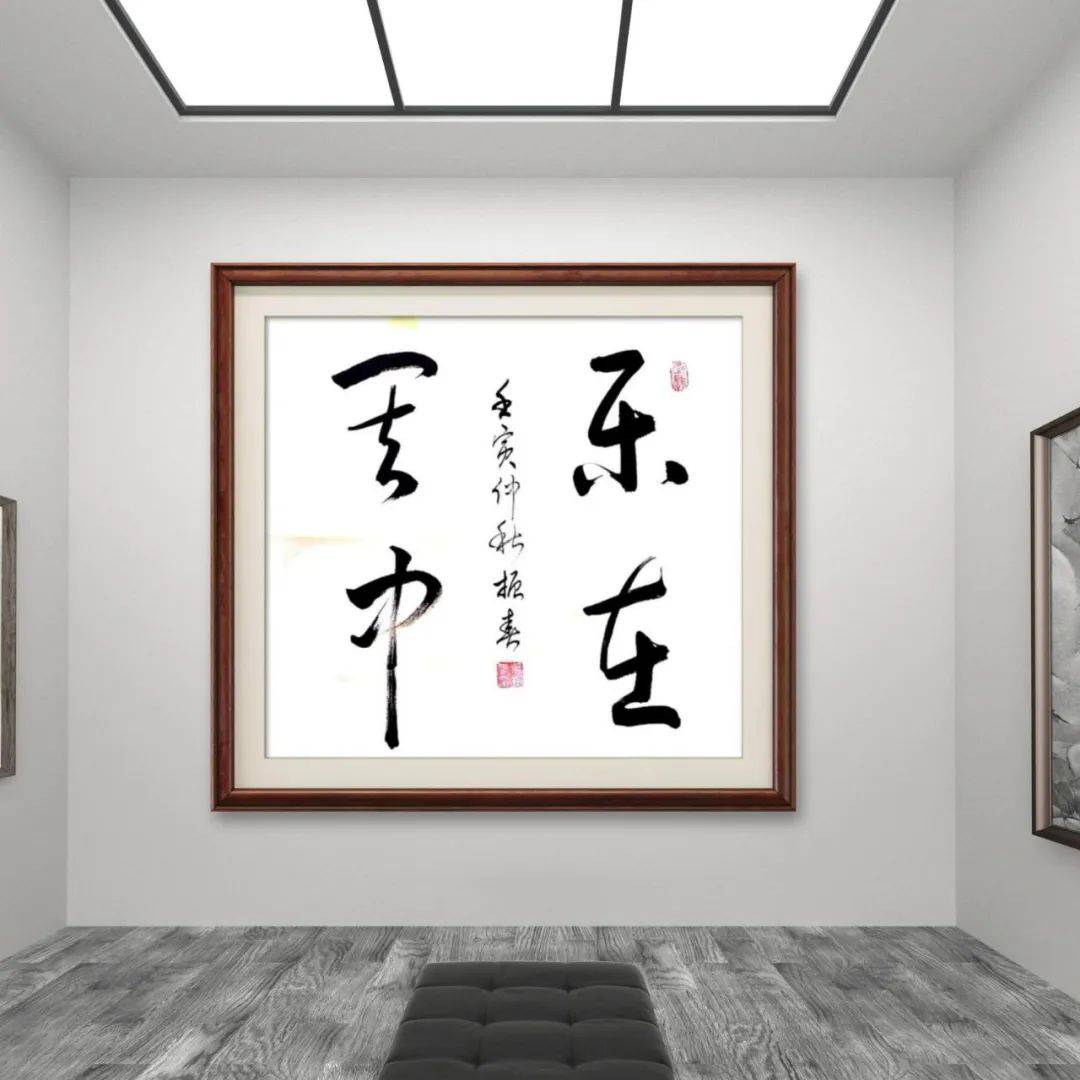 乐在
其中
壬寅仲秋振春